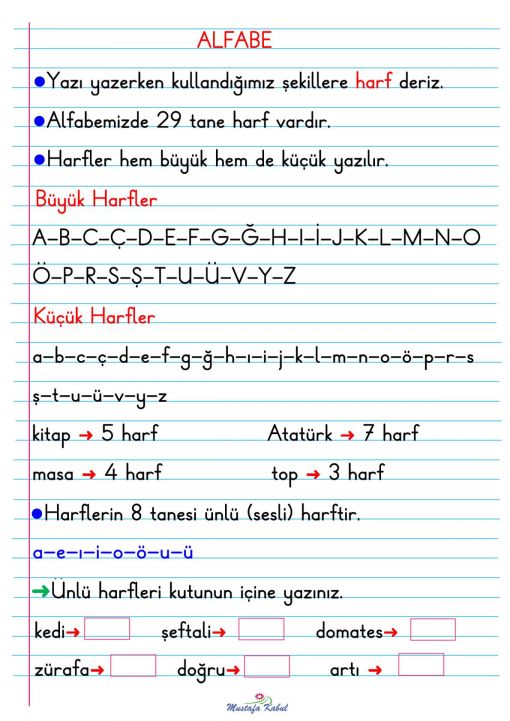 ALFABE
●Yazı yazerken kullandığımız şekillere harf deriz.
●Alfabemizde 29 tane harf vardır.
●Harfler hem büyük hem de küçük yazılır.
Büyük Harfler
A–B–C–Ç–D–E–F–G–Ğ–H–I–İ–J–K–L–M–N–O
Ö–P–R–S–Ş–T–U–Ü–V–Y–Z
Küçük Harfler
a–b–c–ç–d–e–f–g–ğ–h–ı–i–j–k–l–m–n–o–ö–p–r–s
ş–t–u–ü–v–y–z
kitap → 5 harf Atatürk → 7 harf
masa → 4 harf top → 3 harf
●Harflerin 8 tanesi ünlü (sesli) harftir.
a–e–ı–i–o–ö–u–ü
→Ünlü harfleri kutunun içine yazınız.
kedi→ şeftali→ domates→
zürafa→ doğru→ artı →
Mustafa Kabul